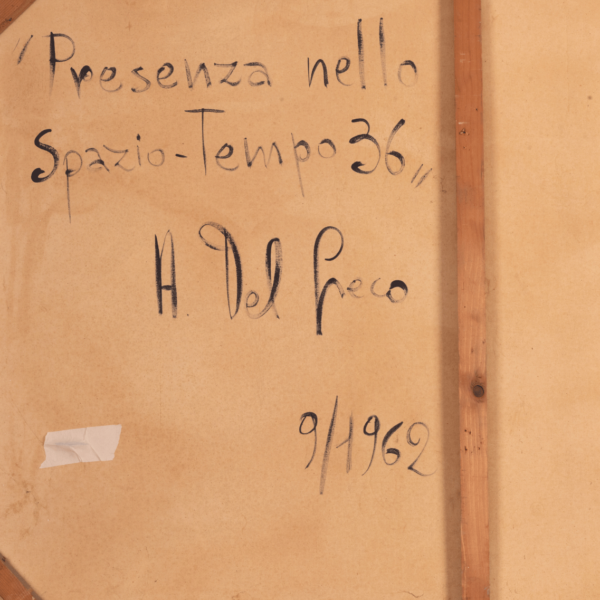 "Presenza nello
Spazio-Tempo 36"
A. Del Greco
9/1962